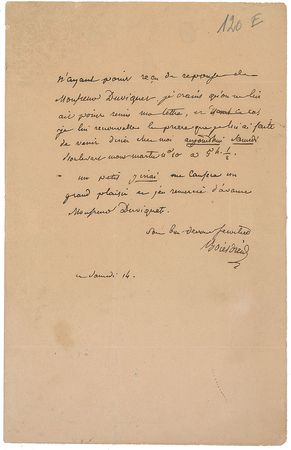 120 E
n'ayant point reçu de reponse de
Monsieur Duviquet je crains qu'on ne lui
ait point remis ma lettre, et dans ce cas
je lui renouvelle la priere que je lui ai faite
de venir diner chez moi aujourdhui Samedi
boulevard montmartre n° 10 a 5 h. 1/2.
un petit j'irai me causera un
grand plaisir et j'en remercie d'avance
Monsieur Duviquet.
Son bien devoué serviteur
Boieldieu
ce Samedi 14.